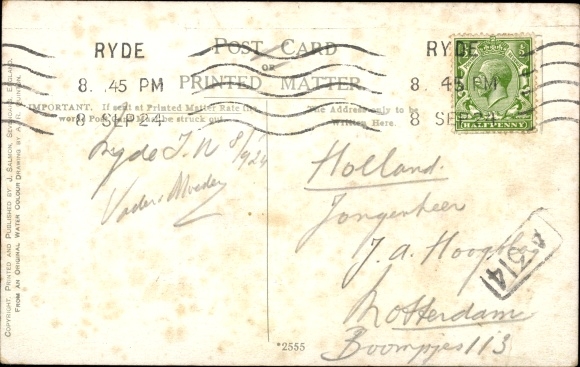 RYDE
8. 45 PM
8 SEP 24
RYDE
8 45 PM
8 SEP 24
POST CARD
OR
PRINTED MATTER
IMPORTANT. If sent at Printed Matter Rate the
words Post Card must be struck out.
The Address only to be
Written Here.
HALFPENNY
Ryde I.W 8/9 24
Vader & Moeder
Holland.
Jongenheer
J. A.
Rotterdam
Boompjes 113
A614
*2555
COPYRIGHT. PRINTED AND PUBLISHED BY J. SALMON, SEVENOAKS, ENGLAND.
FROM AN ORIGINAL WATER COLOUR DRAWING BY A. R. QUINTON.